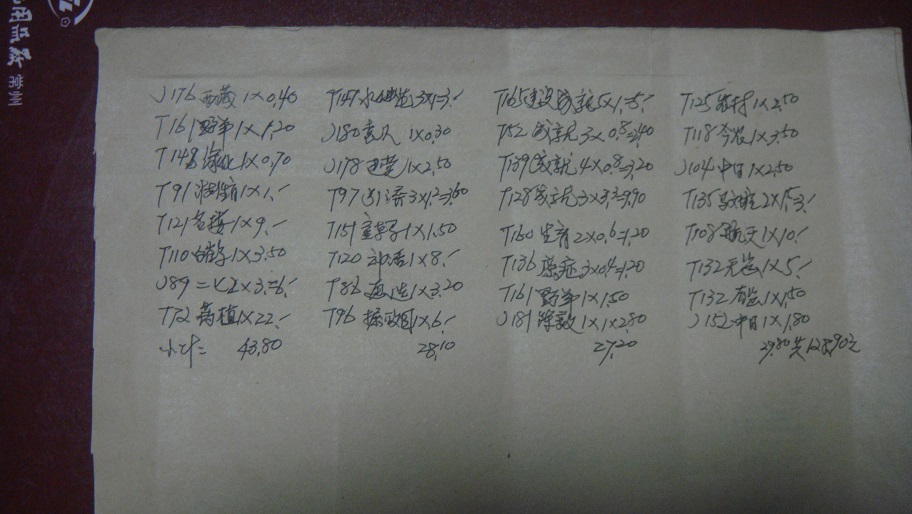 常州
J176 西藏 1×0.40
T161 野羊 1×1.20
T148 绿化 1×0.70
T91 1×1.-
T121 名楼 1×9.-
T110 白鹤 1×3.50
J89 二七 2×3.=6.-
T72 药植 1×22.-
小计= 43.80
T147 水 3×1=3.-
J180 1×0.30
J178 1×2.50
T97 引滦 3×1.2=3.60
T151 1×1.50
T120 1×8.-
T86 1×3.20
T96 拙政园 1×6.-
28.10
T165 建设成就 5×1=5.-
T152 成就 3×0.8=2.40
T139 成就 4×0.8=3.20
T128 成就 3×3.3=9.90
T160 生育 2×0.6=1.20
T136 癌症 3×0.4=1.20
T161 野羊 1×1.50
J181 1×1×2.80
27.20
T125 农村 1×2.50
T118 今农 1×3.50
J104 中日 1×2.50
T135 2×1.5=3.-
T108 航天 1×10.-
T132 无齿 1×5.-
T132 有齿 1×1.50
J152 中日 1×1.80
29.80 共128.90元